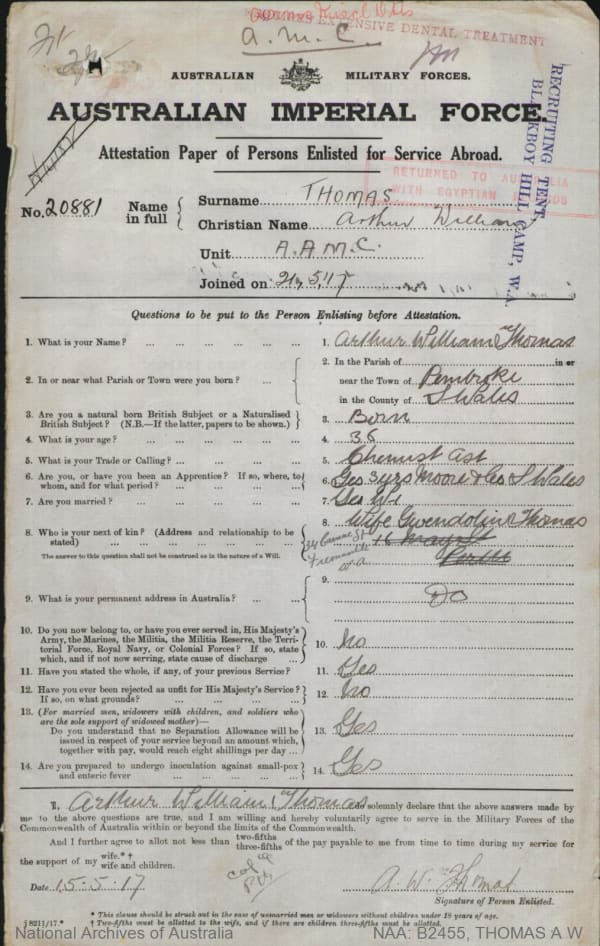 EXTENSIVE DENTAL TREATMENT
A.M.C.
AUSTRALIAN MILITARY FORCES.
AUSTRALIAN IMPERIAL FORCE.
Attestation Paper of Persons Enlisted for Service Abroad.
RECRUITING TENT
BLACKBOY HILL CAMP, W.A.
RETURNED TO AUSTRALIA
WITH EGYPTIAN
No. 20881 Name in full
Surname THOMAS
Christian Name Arthur William
Unit A.A.M.C.
Joined on 21.5.17
Questions to be put to the Person Enlisting before Attestation.
1. What is your Name? ... 1. Arthur William Thomas
2. In or near what Parish or Town were you born? ... 2. In the Parish of in or
near the Town of Pembroke
in the County of S Wales
3. Are you a natural born British Subject or a Naturalised
British Subject? (N.B.—If the latter, papers to be shown.) 3. Born
4. What is your age? ... 4. 36
5. What is your Trade or Calling? ... 5. Chemist Ast
6. Are you, or have you been an Apprentice? If so, where, to
whom, and for what period? ... 6. Yes 3 yrs Moore & Co S Wales
7. Are you married? ... 7. Yes
8. Who is your next of kin? (Address and relationship to be
stated) ... 8. Wife Gwendoline Thomas
16
Perth
Fremantle
W.A.
The answer to this question shall not be construed as in the nature of a Will.
9. What is your permanent address in Australia? ... 9. Do
10. Do you now belong to, or have you ever served in, His Majesty's
Army, the Marines, the Militia, the Militia Reserve, the Terri-
torial Force, Royal Navy, or Colonial Forces? If so, state
which, and if not now serving, state cause of discharge ... 10. No
11. Have you stated the whole, if any, of your previous Service? 11. Yes
12. Have you ever been rejected as unfit for His Majesty's Service?
If so, on what grounds? ... 12. No
13. (For married men, widowers with children, and soldiers who
are the sole support of widowed mother)—
Do you understand that no Separation Allowance will be
issued in respect of your service beyond an amount which,
together with pay, would reach eight shillings per day ... 13. Yes
14. Are you prepared to undergo inoculation against small-pox
and enteric fever ... 14. Yes
I, Arthur William Thomas do solemnly declare that the above answers made by
me to the above questions are true, and I am willing and hereby voluntarily agree to serve in the Military Forces of the
Commonwealth of Australia within or beyond the limits of the Commonwealth.
And I further agree to allot not less than two-fifths three-fifths of the pay payable to me from time to time during my service for
the support of my wife.*† wife and children.
Date 15-5-17
A. W. Thomas
Signature of Person Enlisted.
* This clause should be struck out in the case of unmarried men or widowers without children under 18 years of age.
† Two-fifths must be allotted to the wife, and if there are children three-fifths must be allotted.
National Archives of Australia
NAA: B2455, THOMAS A W